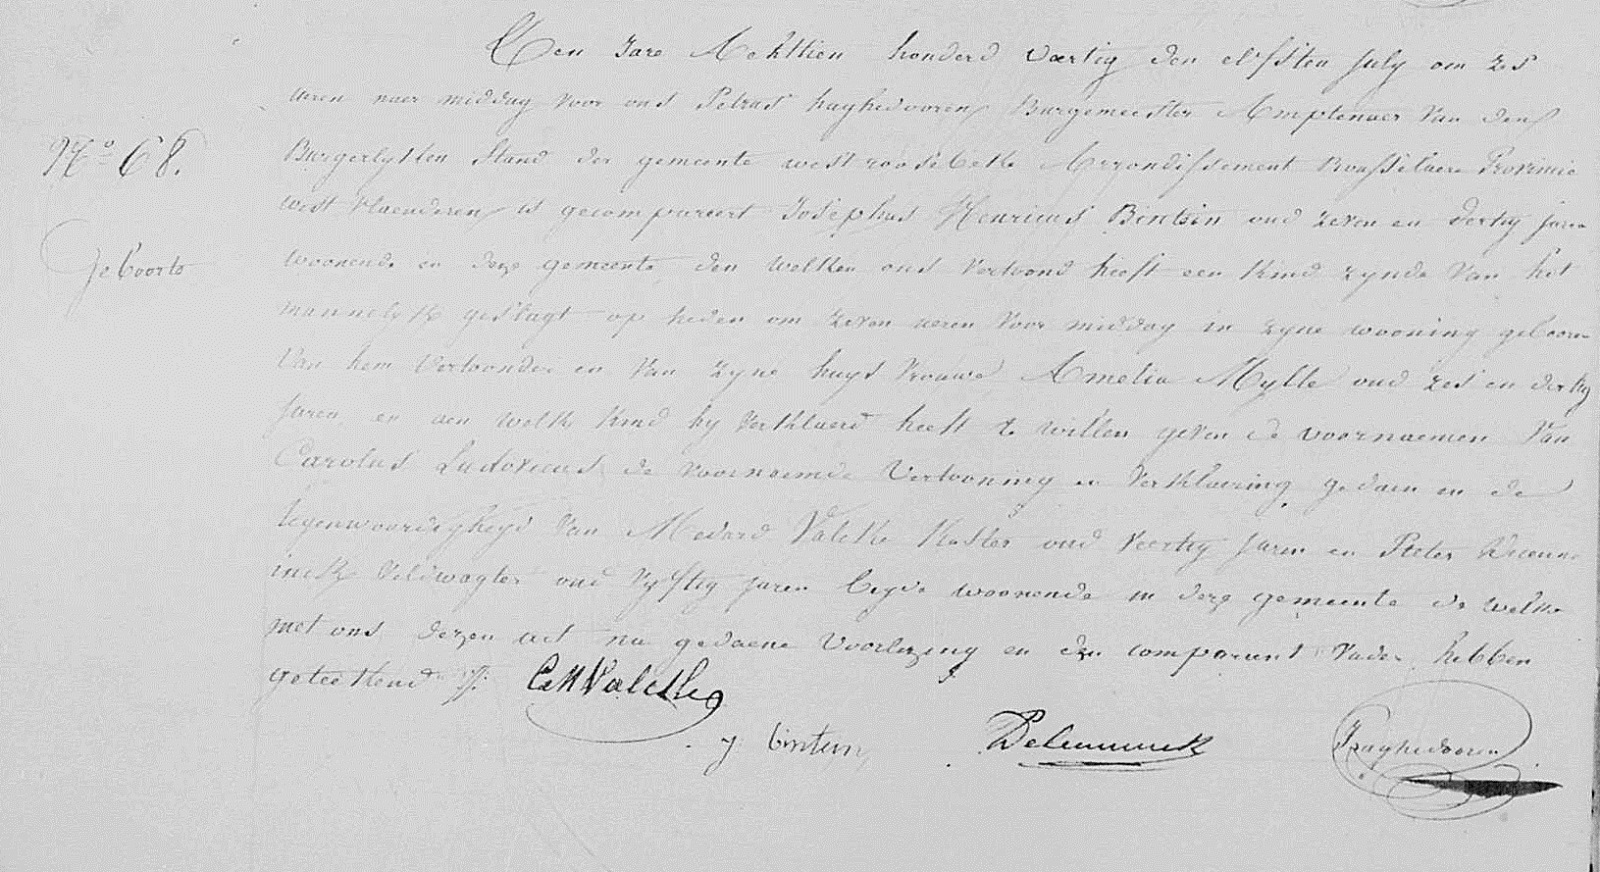 Een Jare Achttien honderd veertig den elfsten July om zes
uren naer middag voor ons Petrus haghedooren Burgemeester Amptenaer van den
N.º 68.
Burgerlykken Stand der gemeente westroosebeke Arrondissement Rousselaere Provincie
west vlaenderen is gecompareert Josephus Henricus Bintein oud zeven en dertig jaren
Geboorte
woonende en deze gemeente den welken ons vertoond heeft een kind zynde van het
mannelyk geslagt op heden om zeven ueren voor middag in zyne wooning gebooren
van hem vertoonder en van zyne huysvrouwe Amelia Mylle oud zes en dertig
jaren, en aen welk kind hy verklaerd heeft te willen geven de voornaemen van
Carolus Ludovicus de voornoemde vertooning en verklaering gedaen en de
tegenwoordigheyd van Medard Valcke Koster oud veertig jaren en Pieter
Veldwagter oud vyftig jaren beyde woonende in deze gemeente de welke
met ons dezen act na gedaene voorlezing en den comparant vader hebben
geteekend
Valcke
J Bintein
haghedooren